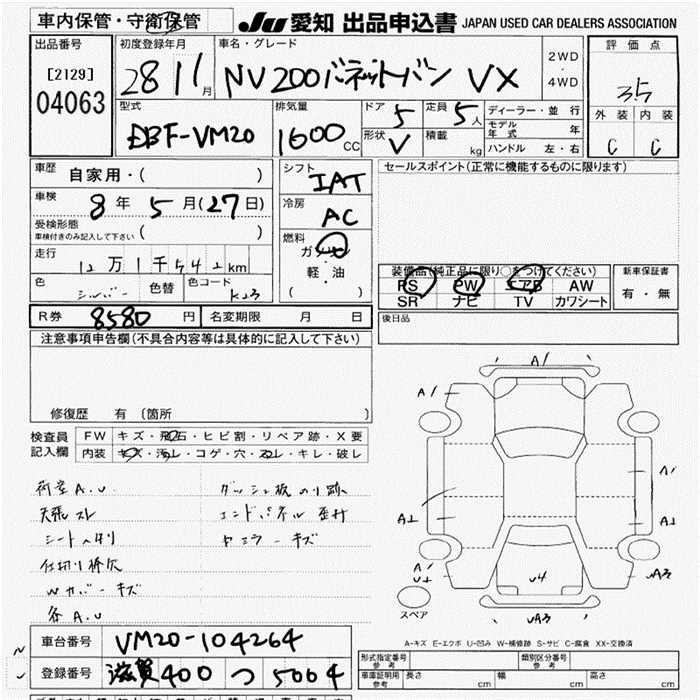 車内保管・守衛保管
JU 愛知 出品申込書 JAPAN USED CAR DEALERS ASSOCIATION
出品番号
[2129]
04063
初度登録年月
28 11月
車名・グレード
NV200バネットバン VX
2WD
・
4WD
評価点
3.5
外装 内装
C C
型式
DBF-VM20
排気量
1600 CC
ドア 5
形状 V
定員 5人
積載 kg
ディーラー・並行
モデル年式 年
ハンドル 左・右
車歴
自家用・( )
車検
8年5月(27日)
受検形態
車検付きのみ記入して下さい ( )
走行
12万1千542km
色 シルバー 色替 色コード K23
シフト
IAT
冷房
AC
燃料
ガソリン
・
軽・油
( )
セールスポイント(正常に機能するものに限ります)
装備品(純正品に限り○をつけてください)
PS PW エアB AW
SR ナビ TV カワシート
新車保証書
有・無
R券 8580円 名変期限 月 日
後日品
注意事項申告欄(不具合内容等は具体的に記入して下さい)
修復歴 有 (箇所 )
検査員記入欄
FW キズ・飛石・ヒビ割・リペア跡・X要
内装 キズ・汚レ・コゲ・穴・スレ・キレ・破レ
荷室A.U
天張スレ
シートヘタリ
仕切り棒欠
Wカバーキズ
各A.U
ダッシュ板のり跡
エンドパネル歪け
カメラーキズ
A1
A1
A1
A1
A1
A1
U1
U4
UA3
UA3
スペア
A-キズ E-エクボ U-凹み W-補修跡 S-サビ C-腐食 XX-交換済
車台番号 VM20-104264
登録番号 滋賀400 つ 5004
形式指定番号 参考
類別区分番号 参考
車庫証明用 参考 長さ cm 幅 cm 高さ cm